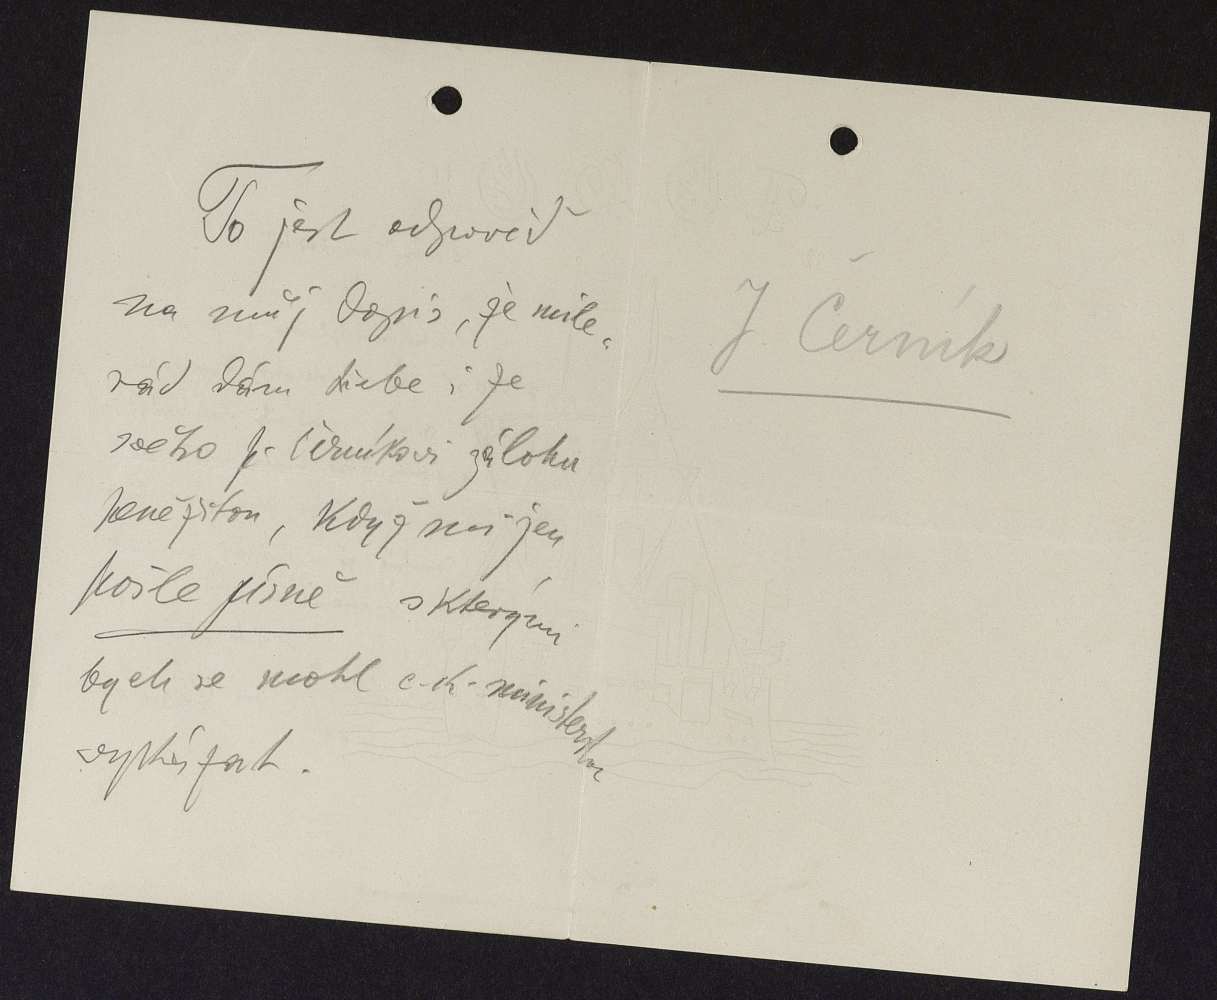 To jest odpověď
na můj dopis, že mile
rád dám sebe i ze
svého p. Černíkovi zálohu
peněžitou, když mi jen
pošle písně s kterými
bych se mohl c. k. ministerstvu
vykázat.
J Černík